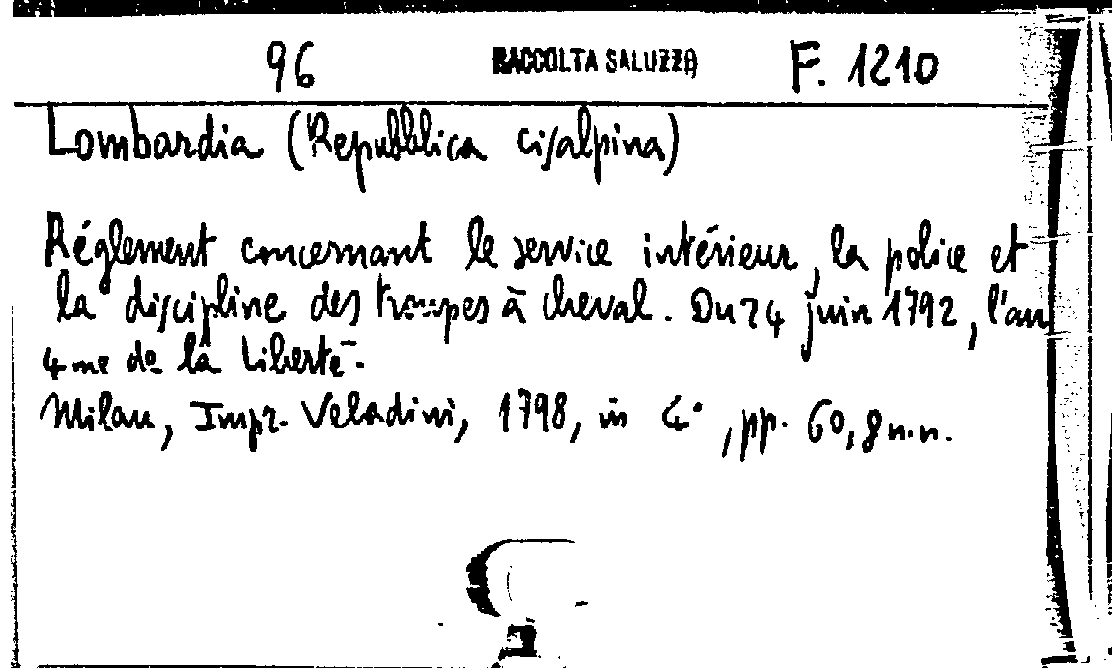 96 RACCOLTA SALUZZO F. 1210
Lombardia (Repubblica cisalpina)
Réglement concernant le service intérieur, la police et
la discipline des troupes à cheval. Du 24 juin 1792, l'an
4me de la Liberté.
Milan, Impr. Veladini, 1798, in 4°, pp. 60, 8 n.n.